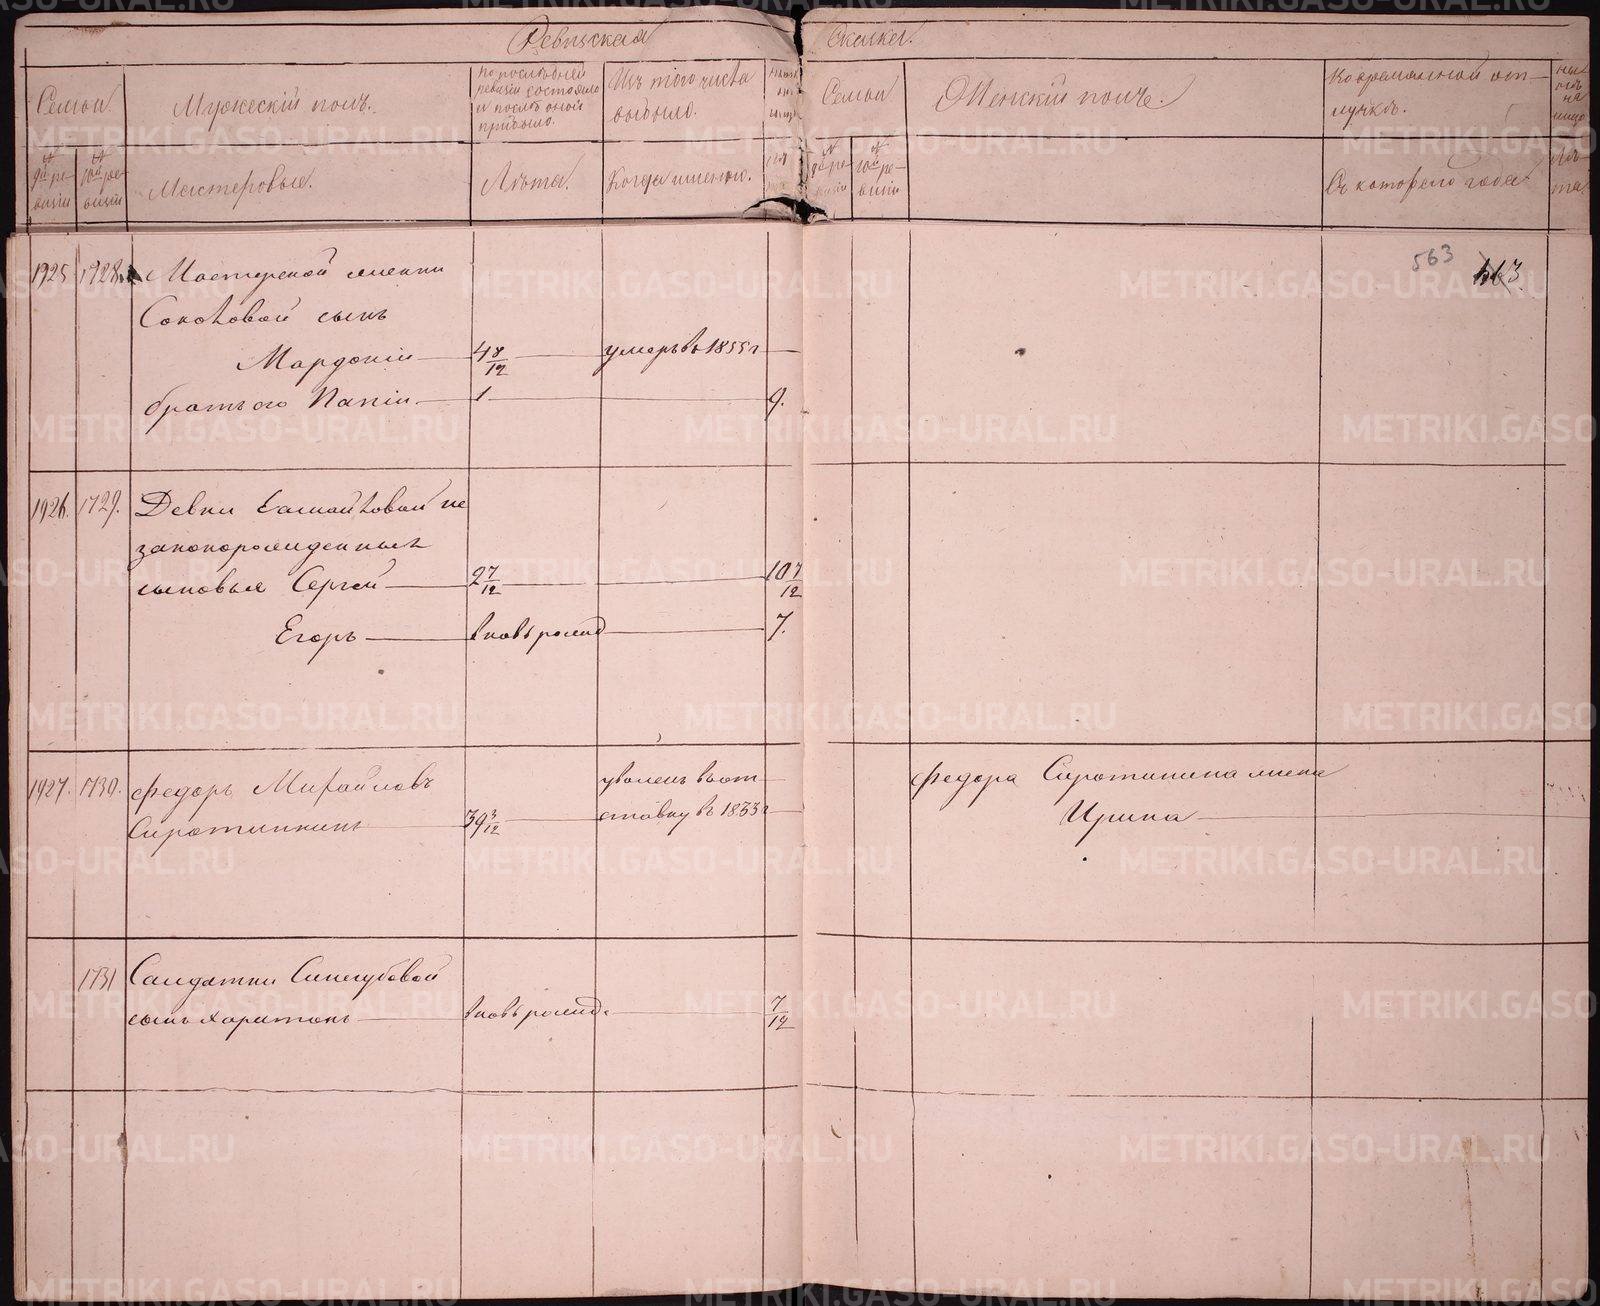 Ревизская Сказка.
Семьи
Мужескій полъ.
По последней
ревизіи состояло
и после оной
прибыло.
Изъ того числа
выбыло.
Семьи
Женскій полъ.
Во временной от-
лучкѣ.
№ 9й ре-
визіи
№ 10й ре-
визіи
Мастеровые.
Лѣта.
Когда именно.
№ 9й ре-
визіи
№ 10й ре-
визіи
Съ котораго года
Лѣ-
та
563
563
1925. 1728. Мастерской женки
Соколовой сынъ
Мардокій 4 8/12 умеръ въ 1855 г
братъ его Папій 1 9.
1926. 1729. Девки не
законорожденные
сыновья Сергей 2 7/12 10 7/12
Егоръ вновь рожд 7.
1927. 1730. Федоръ Михайловъ
Сиротинкинъ 39 3/12
уволенъ въ от
ставку в 1833 г
Федора Сиротинина жена
Ирина
1731 Салдатки Синегубовой
сынъ Харитонъ вновь рожд. 7/12
METRIKI.GASO-URAL.RU